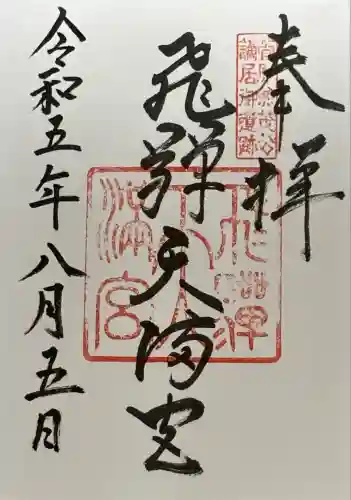 奉拝
飛騨天満宮
令和五年八月五日
飛騨天満宮
謫居御遺跡